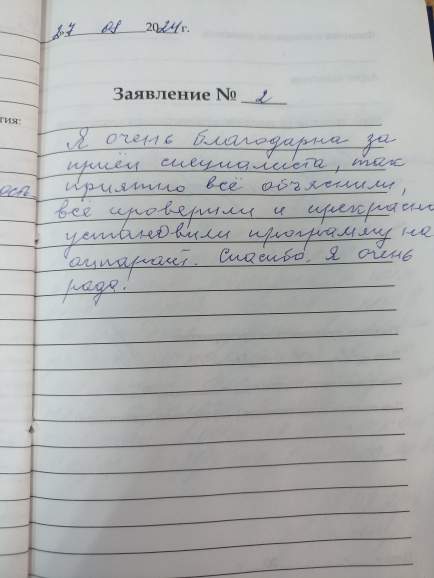 27 01 2024 г.
Заявление № 2
Я очень благодарна за
приём специалиста, так
приятно всё объяснили,
всё проверили и прекрасно
установили программу на
аппарат. Спасибо. Я очень
рада.
тия: